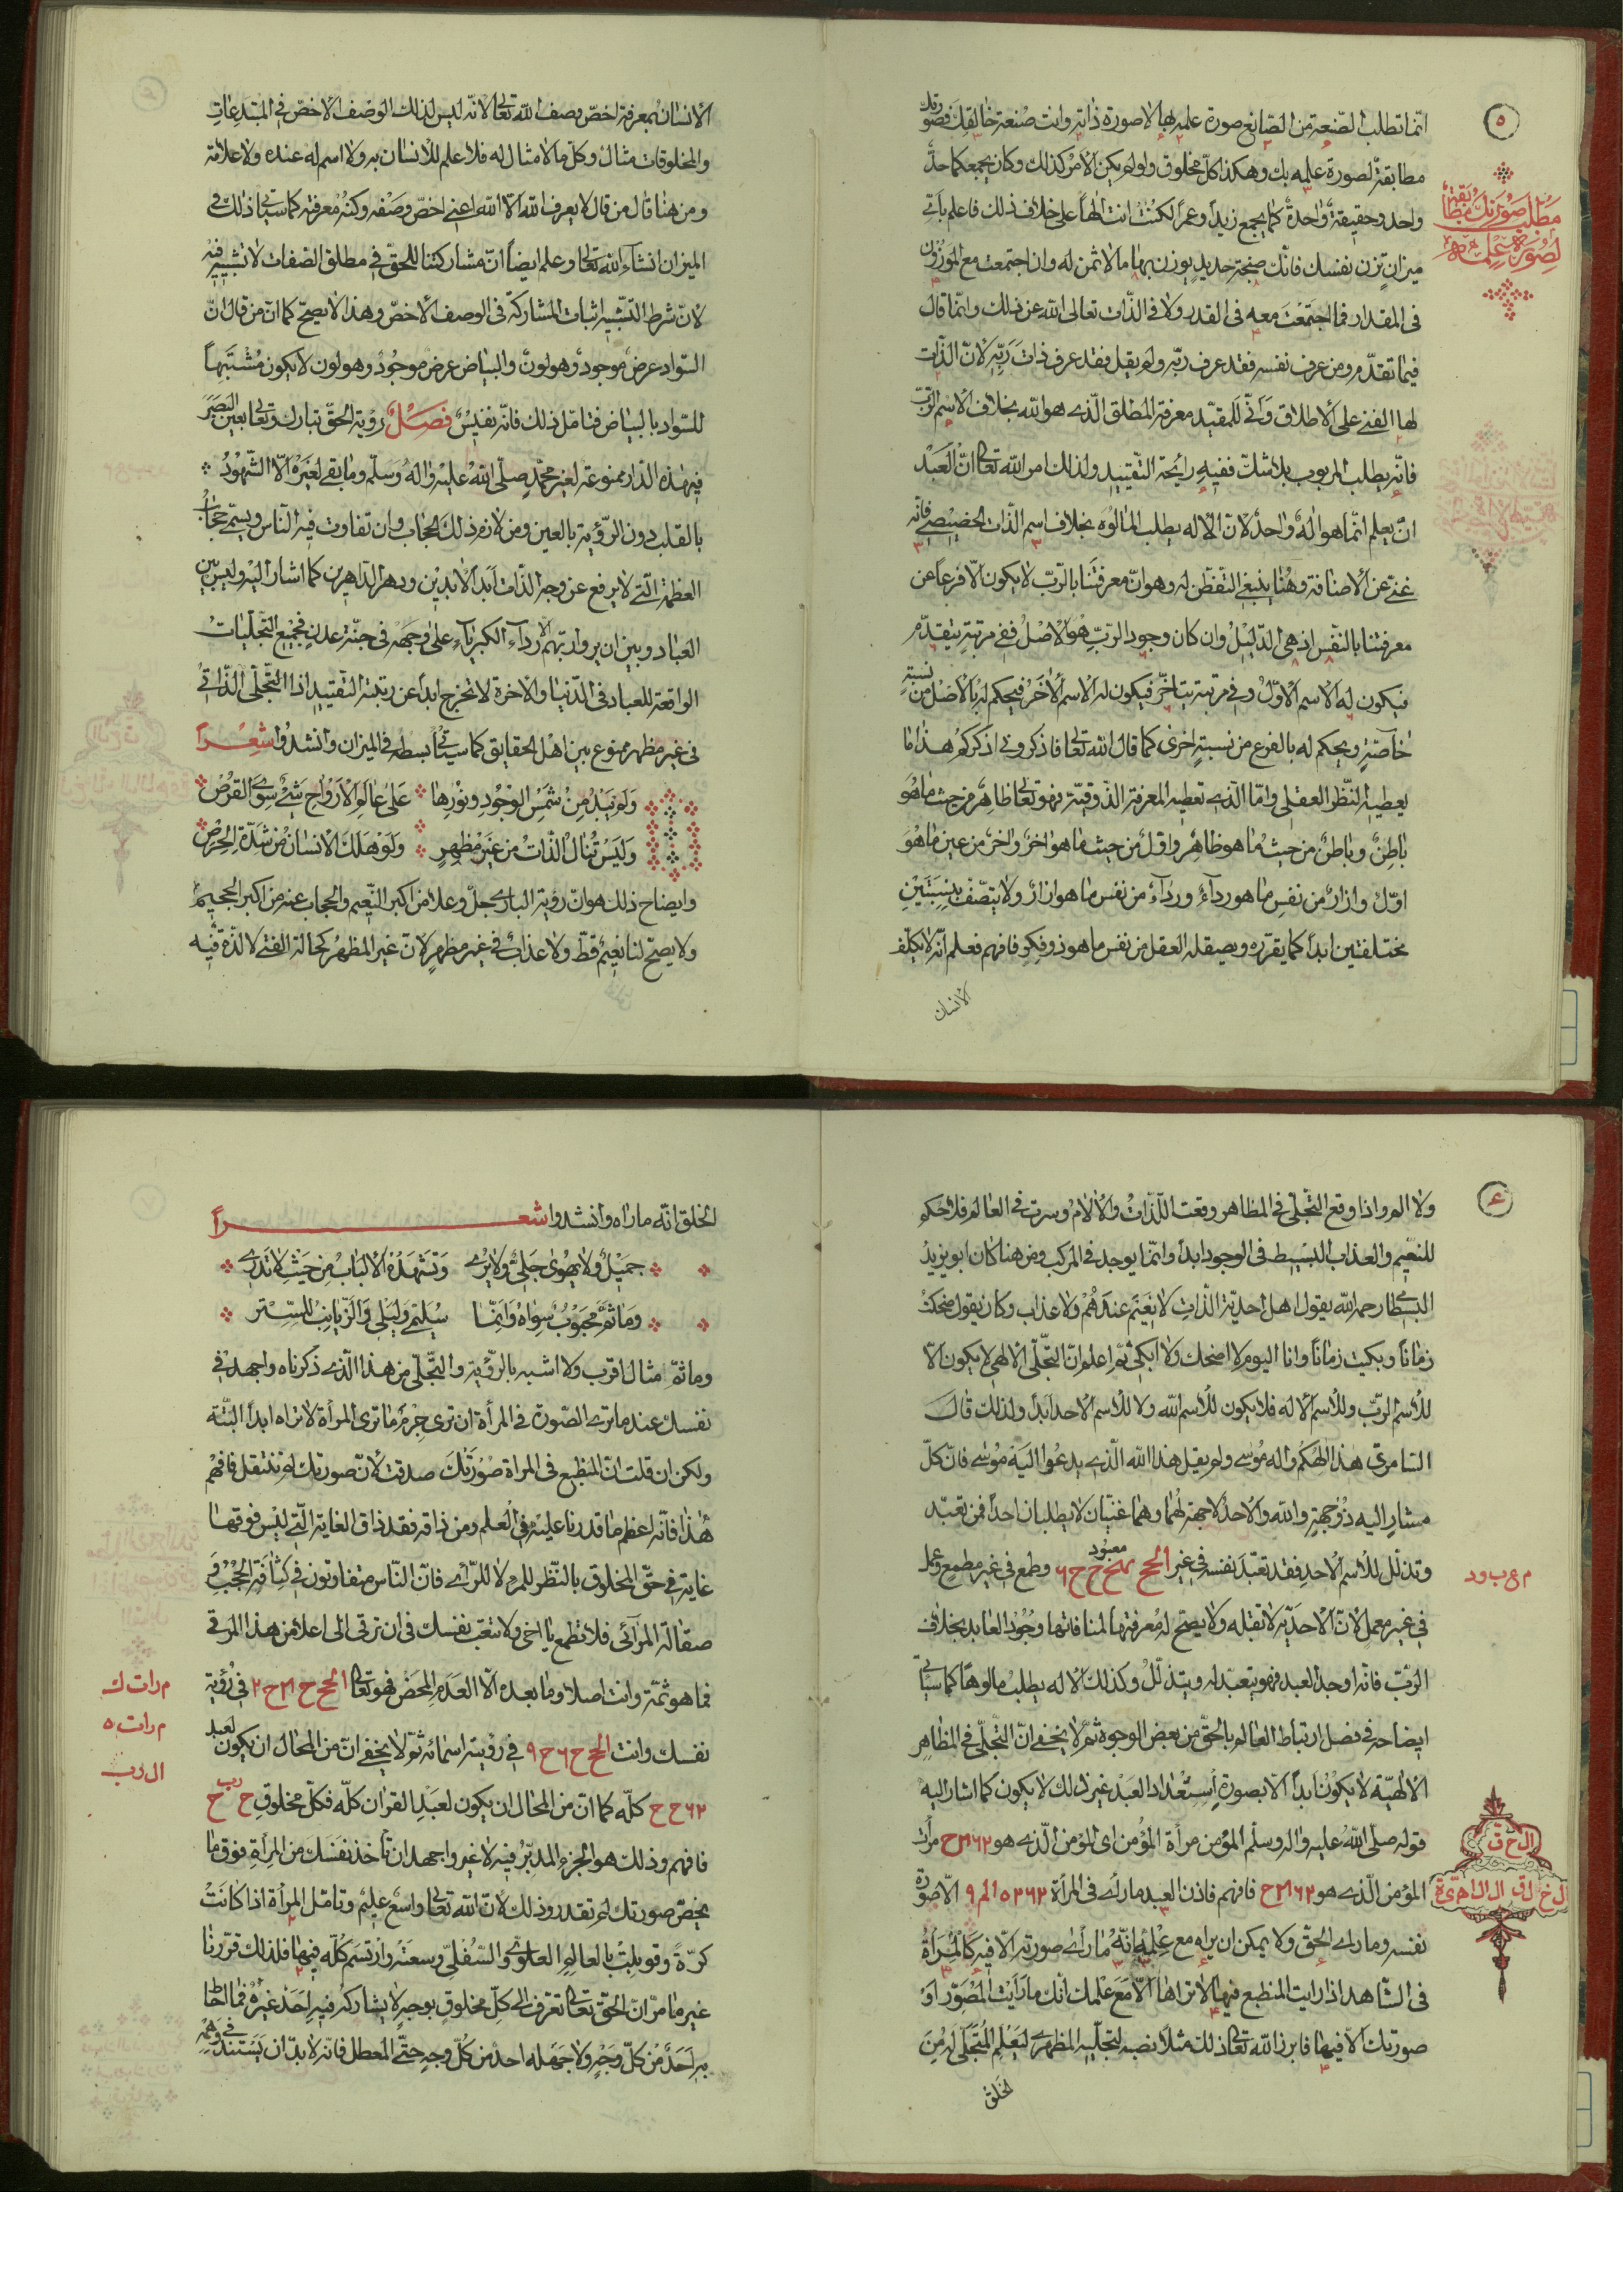 ٥
انما تطلب الصنعة من الصانع صورة علمه بها لا صورة ذاته وانت صنعة خالقك فصورتك
مطابقة لصورة علمه بك وهكذا كل مخلوق ولو لم يكن الامر كذلك وكان يجمعكما حدّ
واحد وحقيقة واحدة كما يجمع زيداً وعمراً لكنت انت الهاً على خلاف ذلك فاعلم باي
ميزان تزن نفسك فانك صنجة حديد يوزن بها ما لا ثمن له وان اجتمعت مع الموزون
فى المقدار فما اجتمعت معه فى القدر ولا فى الذات تعالى الله عن ذلك وانما قال
فيما تقدم ومن عرف نفسه فقد عرف ربه ولم يقل فقد عرف ذات ربه لان الذات
لها الغنى على الاطلاق وانّى للمقيد معرفة المطلق الذى هو الله بخلاف الاسم الربّ
فانه يطلب المربوب بلا شك ففيه رايحة التقييد ولذلك امر الله تعالى العبد
ان يعلم انما هو اله واحد لان الاله يطلب المألوه بخلاف اسم الذات الخصيصى فانه
غنى عن الاضافة وهنا ينبغى التفطن له وهو ان معرفتنا بالرب لا يكون الا فرعاً عن
معرفتنا بالنفس اذ هى الدليل وان كان وجود الرب هو الاصل ففى مرتبة يتقدم
فيكون له الاسم الاول وفى مرتبة يتاخر فيكون له الاسم الآخر فيحكم له بالاصل من نسبة
خاصة ويحكم له بالفرع من نسبة اخرى كما قال الله تعالى فاذكرونى اذكركم هذا ما
يعطيه النظر العقلى واما الذى تعطيه المعرفة الذوقية فهو تعالى ظاهر من حيث ما هو
باطن وباطن من حيث ما هو ظاهر واول من حيث ما هو اخر واخر من عين ما هو
اوّل وازار من نفس ما هو رداء ورداء من نفس ما هو ازار ولا يتصف بنسبتين
مختلفتين ابداً كما يقرره ويعقله العقل من نفس ما هو ذو فكر فافهم فعلم انه لا يكلف
الانسان
مطلب صورتك مطابقة
لصورة علمه
الانسان بمعرفة اخص وصف الله تعالى لانه ليس لذلك الوصف الاخص فى المبتدعات
والمخلوقات مثال وكل ما لا مثال له فلا علم للانسان به ولا اسم له عنده ولا علامة
ومن هنا قال من قال لا يعرف الله الا الله اعنى اخص وصفه وكنه معرفته كما سياتى ذلك فى
الميزان انشاء الله تعالى وعلم ايضاً ان مشاركتنا للحق فى مطلق الصفات لا تشبيه فيه
لان شرط التشبيه اثبات المشاركة فى الوصف الاخص وهذا لا يصح كما ان من قال ان
السواد عرض موجود وهو لون والبياض عرض موجود وهو لون لا يكون مشبّهاً
للسواد بالبياض فتامل ذلك فانه نفيس فصل رؤية الحق تبارك وتعالى بعين البصر
فى هذه الدار ممنوعة لغير محمد صلى الله عليه واله وسلم وما بقى لغيره الا الشهود
بالقلب دون الرؤية بالعين ومن لازم ذلك الحجاب وان تفاوت فيه الناس ويسمى حجاب
العظمة التى لا يرفع عن وجه الذات ابد الابدين ودهر الداهرين كما اشار اليه وليس بين
العباد وبين ان يروا ربهم الا رداء الكبرياء على وجهه فى جنة عدن فجميع التجليات
الواقعة للعباد فى الدنيا والاخرة لا تخرج ابداً عن رتبة التقييد اذا التجلى الذاتى
فى غير مظهر ممنوع بين اهل الحقايق كما سياتى بسطه فى الميزان وانشدوا شعراً
ولم يبد من شمس الوجود ونورها على عالم الارواح شىء سوى القرص
وليس تنال الذات من غير مظهر ولو هلك الانسان من شدة الحرص
وايضاح ذلك هو ان رؤية البارى جل وعلا من اكبر النعيم والحجاب عنه من اكبر الجحيم
ولا يصح لنا نعيم قط ولا عذاب فى غير مظهر لان غير المظهر كحالة الغنى لا لذة فيه
٤
ولا الم واذا وقع التجلى فى المظاهر وقعت اللذات والالام وسرت فى العالم فلا حكم
للنعيم والعذاب البسيط فى الوجود ابداً وانما يوجد فى المركب ومن هنا كان ابو يزيد
البسطامى رحمه الله يقول اهل احدية الذات لا نعيم عندهم ولا عذاب وكان يقول ضحكت
زماناً وبكيت زماناً وانا اليوم لا اضحك ولا ابكى ثم اعلم ان التجلى الالهى لا يكون الا
للاسم الرب وللاسم الاله فلا يكون للاسم الله ولا للاسم الاحد ابداً ولذلك قال
السامرى هذا الهكم واله موسى ولم يقل هذا الله الذى يدعوا اليه موسى فان كل
مشار اليه ذو جهة والله والاحد لا جهة لهما وهما غنيان لا يطلبان احداً فمن تعبد
وتذلل للاسم الاحد فقد تعبد نفسه فى غير معبود وطمع فى غير مطمع وعمل
فى غير معمل لان الاحدية لا تقبله ولا يصح له معرفتها لمنافاتها وجود العابد بخلاف
الرب فانه اوجد العبد فهو يتعبد له ويتذلل وكذلك الاله يطلب مالوهاً كما سياتى
ايضاحه فى فصل ارتباط العالم بالحق من بعض الوجوه ثم لا يخفى ان التجلى فى المظاهر
الالهية لا يكون ابداً الا بصورة استعداد العبد غير ذلك لا يكون كما اشار اليه
قوله صلى الله عليه واله وسلم المؤمن مرأة المؤمن اى المؤمن الذى هو مرأت
المؤمن الذى هو فافهم فاذن العبد ما رأى فى المرأة الا صورة
نفسه وما راى الحق ولا يمكن ان يراه مع علمه انه ما رأى صورته الا فيه كالمرأة
فى الشاهد اذا رايت المنطبع فيها لا تراها الا مع علمك انك ما رأيت المصور او
صورتك الا فيها فابرز الله تعالى ذلك مثلاً نصبه لتجليه المظهرى ليعلم المتجلى له من
الخلق
الخلق انه ما راه وانشدوا شعراً
جميل ولا يهوى جلى ولا يرى وتشهده الالباب من حيث لا تدرى
وما ثم محبوب سواه وانما سليمى وليلى والزيانب للستر
وما ثم مثال اقرب ولا اشبه بالرؤية والتجلى من هذا الذى ذكرناه واجهد فى
نفسك عند ما ترى الصورة فى المرأة ان ترى جرم ما ترى المرأة لا تراه ابداً البتة
ولكن ان قلت ان المنطبع فى المرأة صورتك صدقت لان صورتك لم تنتقل فافهم
هذا فانه اعظم ما قدرنا عليه فى العلم ومن ذاقه فقد ذاق الغاية التى ليس فوقها
غاية فى حق المخلوق بالنظر للمرء لا للرأى فان الناس متفاوتون فى كثافة الحجب و
صقالة المرائى فلا تطمع يا اخى ولا تتعب نفسك فى ان ترقى الى اعلا من هذا المرقى
فما هو ثمة وانت اصلاً وما بعده الا العدم المحض فهو تعالى فى رؤية
نفسك وانت فى رؤيته اسمائه ثم لا يخفى ان من المحال ان يكون لعبد
كله كما ان من المحال ان يكون لعبد القران كله فكل مخلوق رب
فافهم وذلك هو الجزء المدبر فيه لا غير واجهد ان تأخذ نفسك من المرأة فوق ما
يخص صورتك لم تقدر وذلك لان الله تعالى واسع عليم وتامل المرأة اذا كانت
كرة وقوبلت بالعالم العلوى والسفلى وسعته وارتسم كله فيها فلذلك قررنا
غير ما مر ان الحق تعالى تعرف الى كل مخلوق بوجه لا يشاركه فيه احد غيره فما احاط
به احد من كل وجه ولا جهله احد من كل وجه حتى المعطل فانه لا بد ان يستند فى وهمه